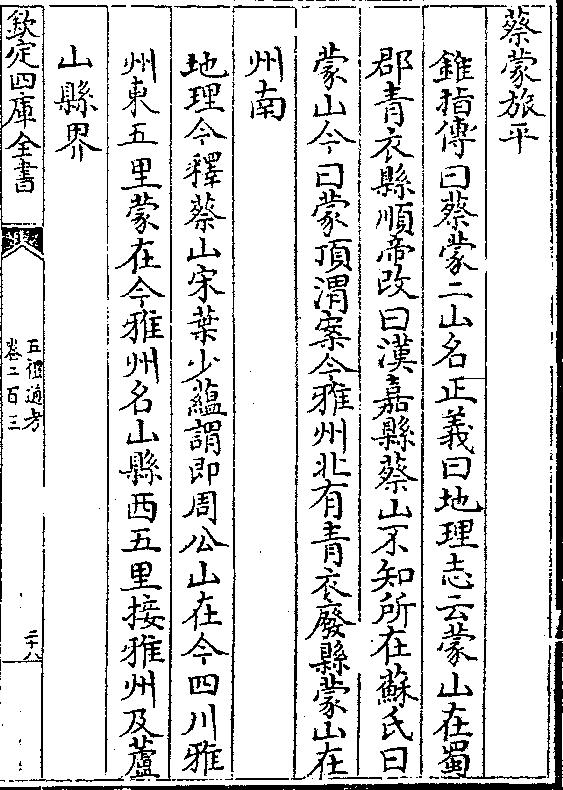 蔡蒙旅平
錐指傳曰蔡蒙二山名正義曰地理志云蒙山在蜀
郡青衣縣順帝改曰漢嘉縣蔡山不知所在蘇氏曰
蒙山今曰蒙頂渭案今雅州北有青衣廢縣蒙山在
州南
地理今釋蔡山宋葉少蘊謂即周公山在今四川雅
州東五里蒙在今雅州名山縣西五里接雅州及蘆
山縣界
欽定四庫全書
五禮通考
卷二百三
二十八